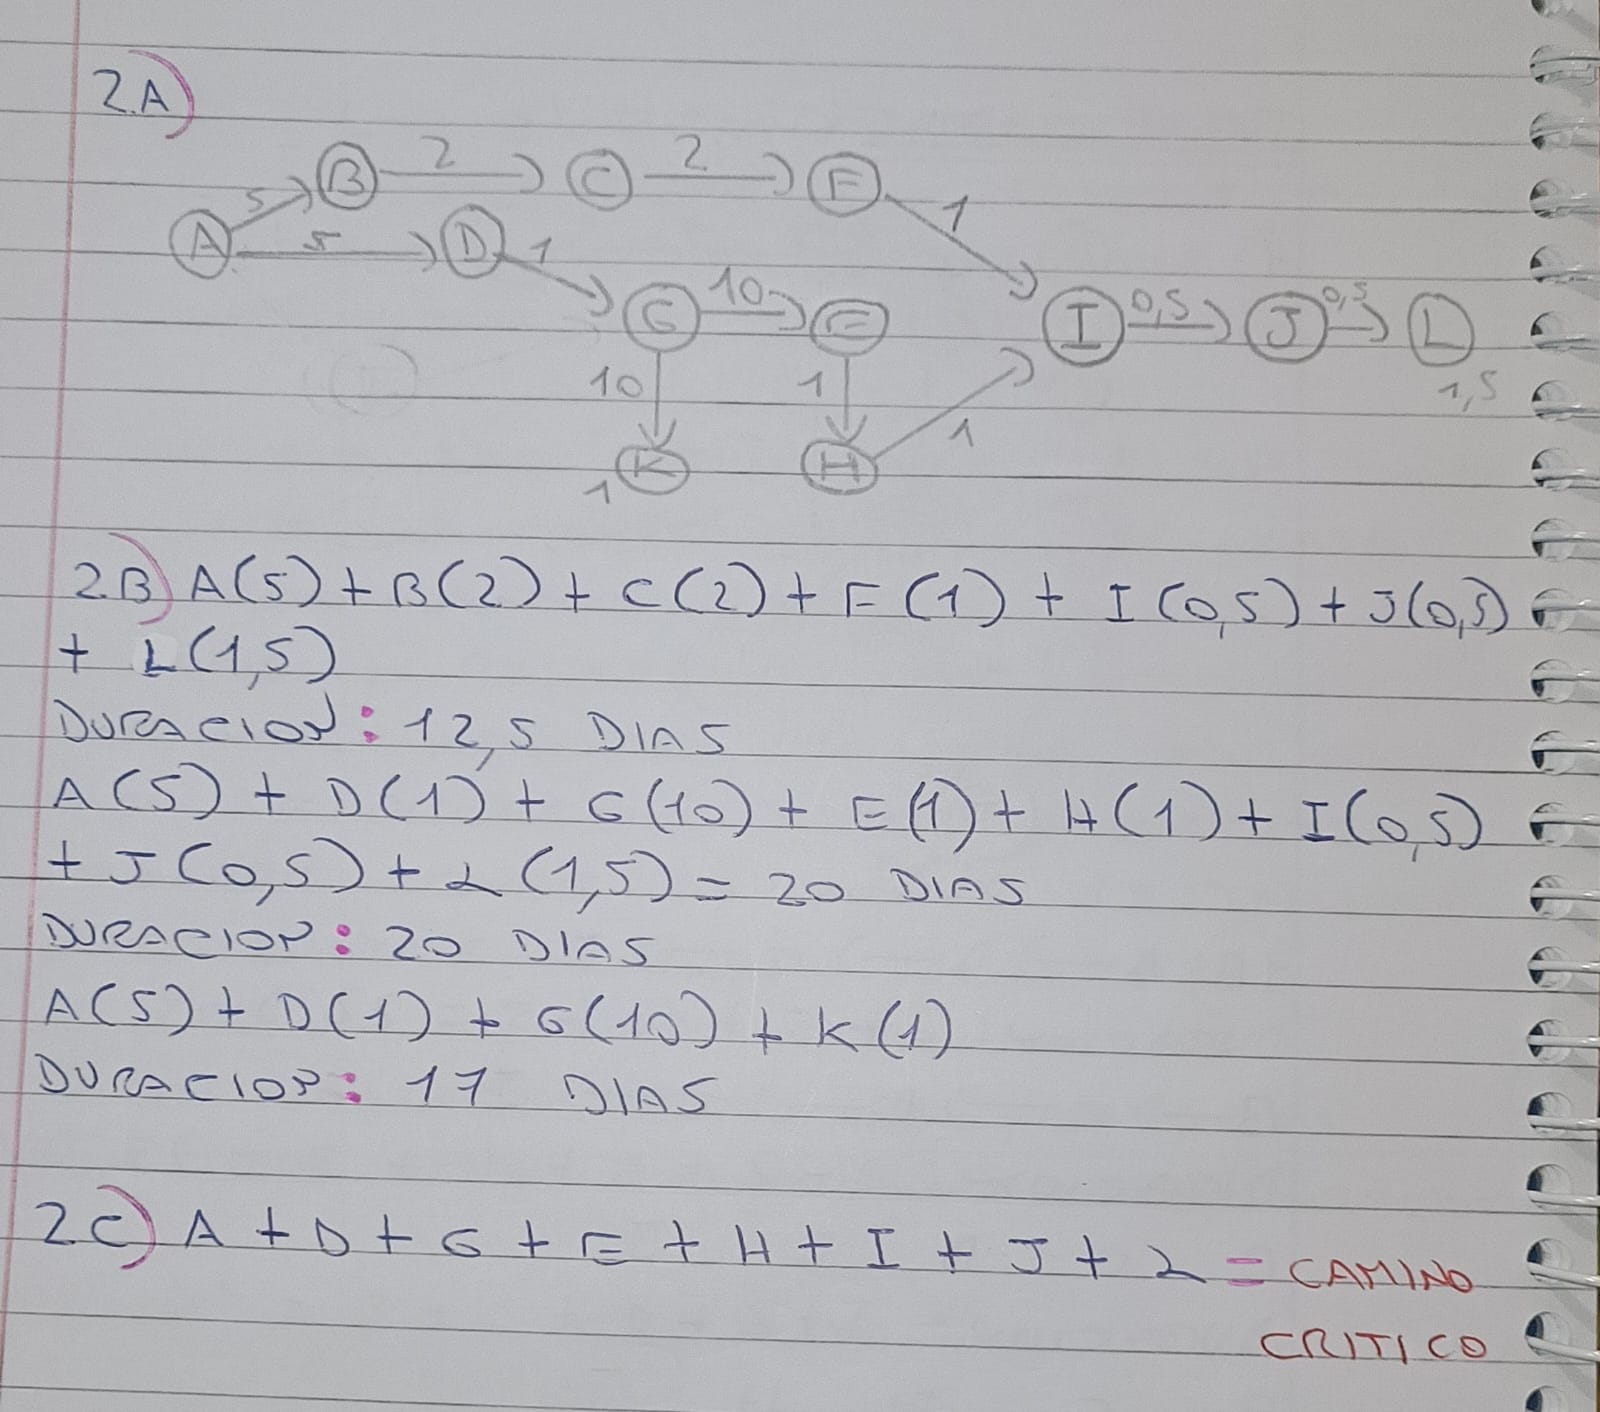 2A)
B 2 C 2 F 1
5
A 5 D 1
G 10 E I 0,5 J 0,5 L
10 1 1 1,5
K H
1
2B) A(5) + B(2) + C(2) + F(1) + I(0,5) + J(0,5)
+ L(1,5)
DURACION: 12,5 DIAS
A(5) + D(1) + G(10) + E(1) + H(1) + I(0,5)
+ J(0,5) + L(1,5) = 20 DIAS
DURACION: 20 DIAS
A(5) + D(1) + G(10) + K(1)
DURACION: 17 DIAS
2C) A + D + G + E + H + I + J + L = CAMINO
CRITICO